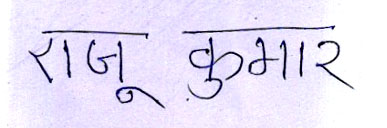 राजू कुमार